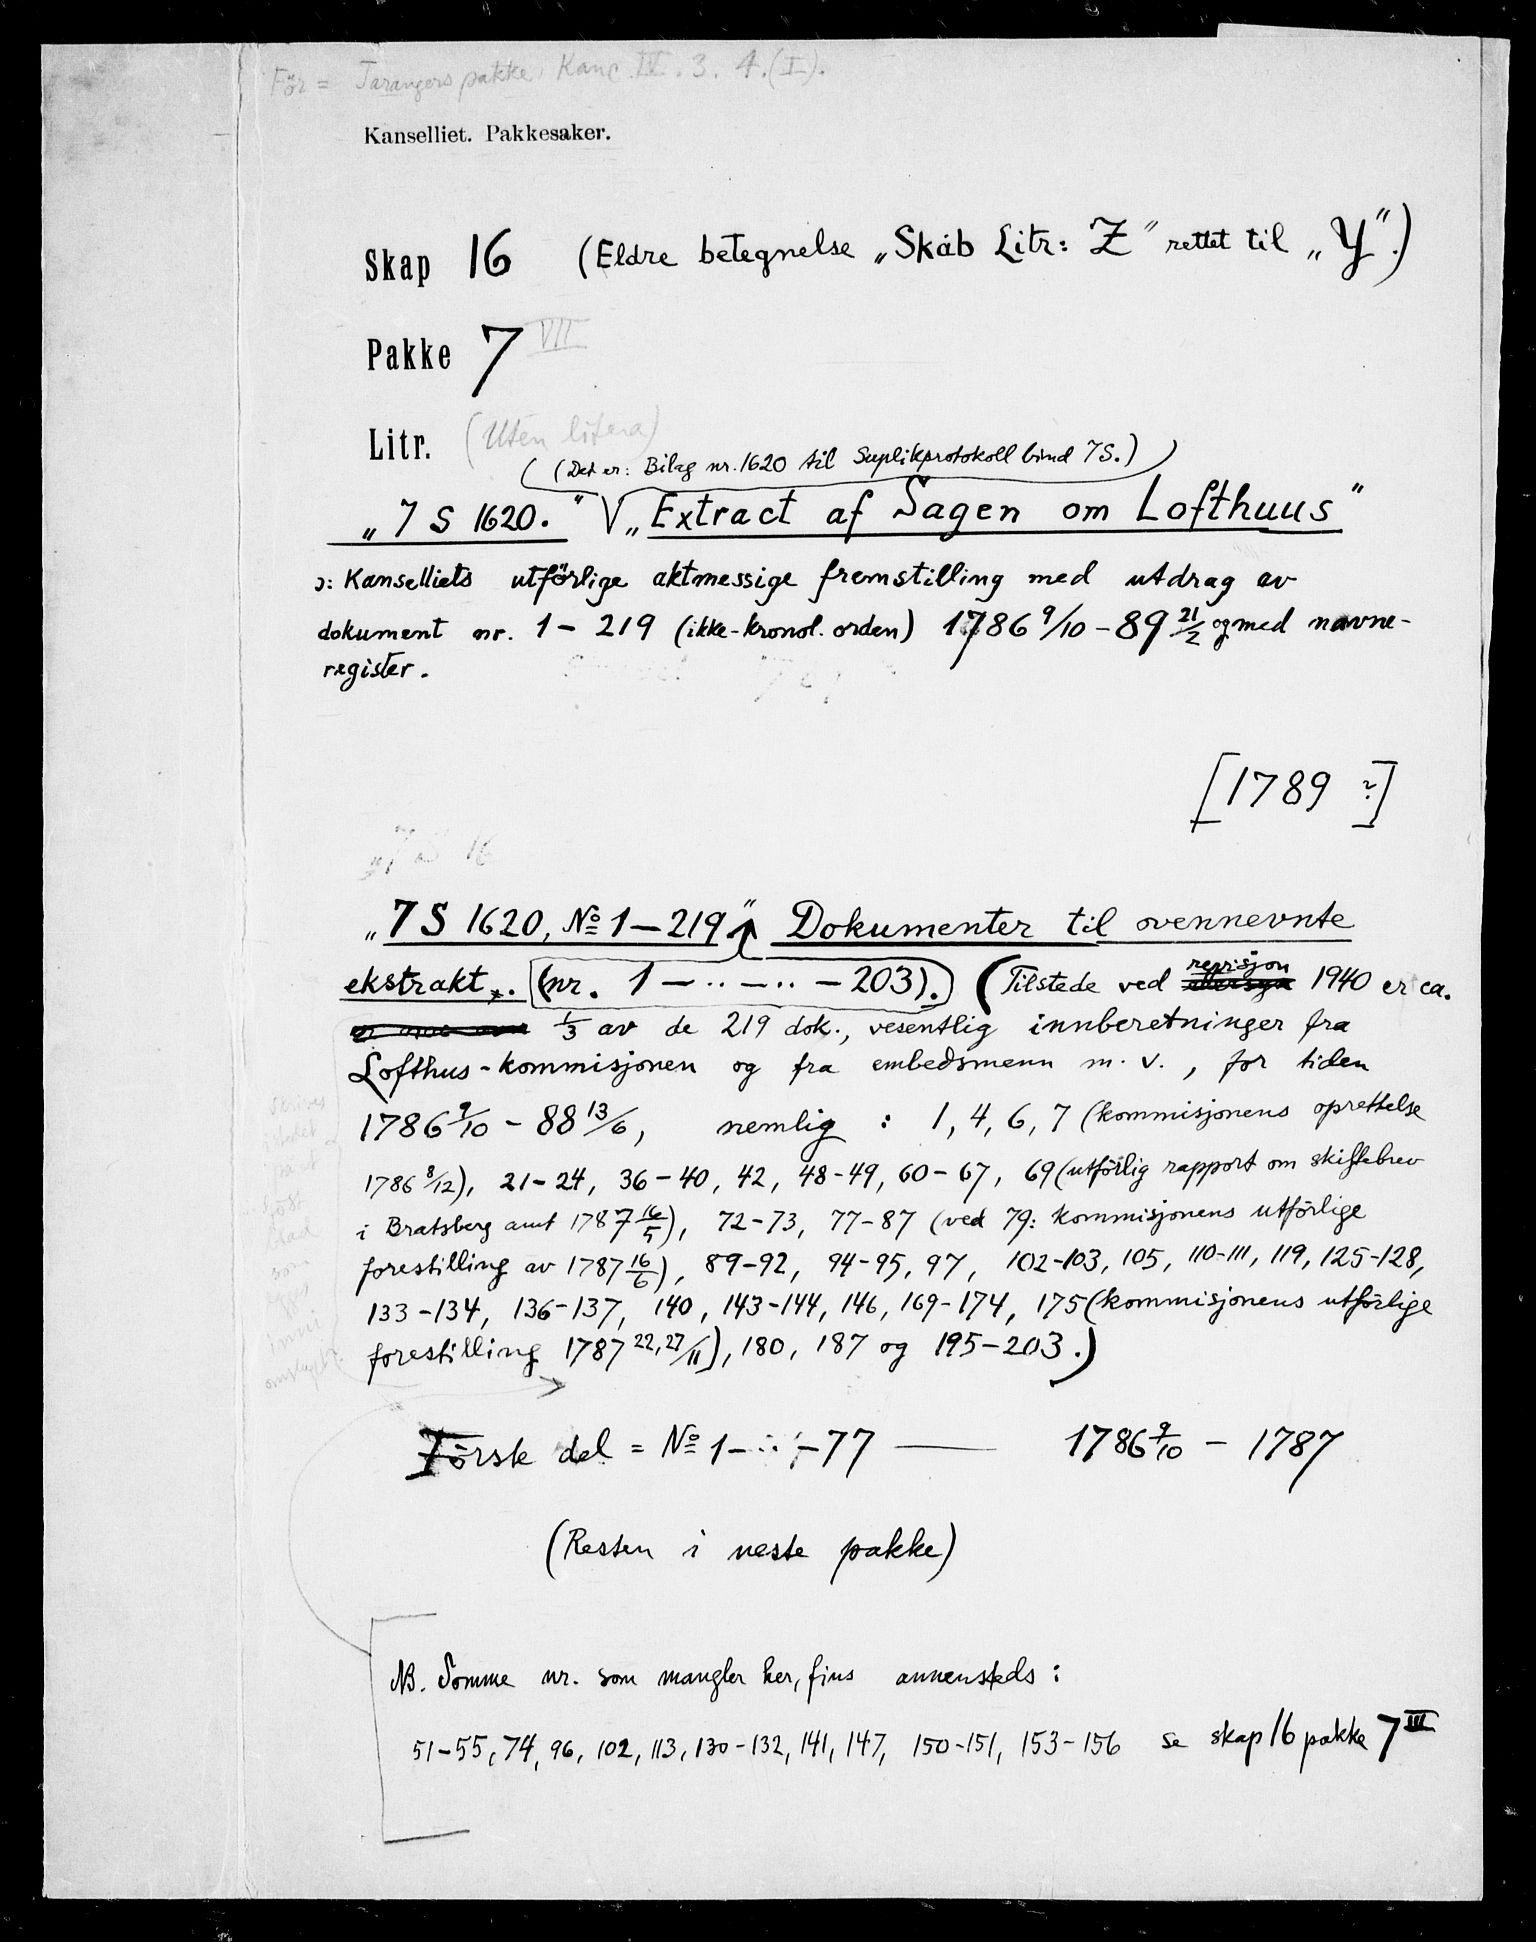 För = Tarangers pakke, Kanc. IV. 3. 4. (I).
Kanselliet. Pakkesaker.
Skap 16 (Eldre betegnelse „Skab Litr: Z" rettet til „Y".)
Pakke 7 VII
Litr. (Uten litera)
(Det er: Bilag nr. 1620 til Suplikprotokoll bind 7S.)
„7 S 1620." „Extract af Sagen om Lofthuus"
ɔ: Kanselliets utförlige aktmessige fremstilling med utdrag av
dokument nr. 1 - 219 (ikke-kronol. orden) 1786 9/10 - 89 21/2 og med navne-
register.
[1789 ?]
„7 S 16
„7 S 1620, No 1 - 219" Dokumenter til ovennevnte
ekstrakt. (nr. 1 - .. - .. - 203). (Tilstede ved revisjon 1940 er ca.
1/3 av de 219 dok., vesentlig innberetninger fra
Lofthus-kommisjonen og fra embedsmenn m. v., for tiden
1786 9/10 - 88 13/6, nemlig : 1, 4, 6, 7 (kommisjonens oprettelse
1786 8/12), 21-24, 36-40, 42, 48-49, 60-67, 69 (utförlig rapport om skiftebrev
i Bratsberg amt 1787 16/5), 72-73, 77-87 (ved 79: kommisjonens utförlige
forestilling av 1787 16/6), 89-92, 94-95, 97, 102-103, 105, 110-111, 119, 125-128,
133-134, 136-137, 140, 143-144, 146, 169-174, 175 (kommisjonens utförlige
forestilling 1787 22,27/11), 180, 187 og 195-203.)
Förste del = No 1 - .. - 77 — 1786 9/10 - 1787
(Resten i neste pakke)
NB. Somme nr. som mangler her, fins annensteds :
51-55, 74, 96, 102, 113, 130-132, 141, 147, 150-151, 153-156 se skap 16 pakke 7 III